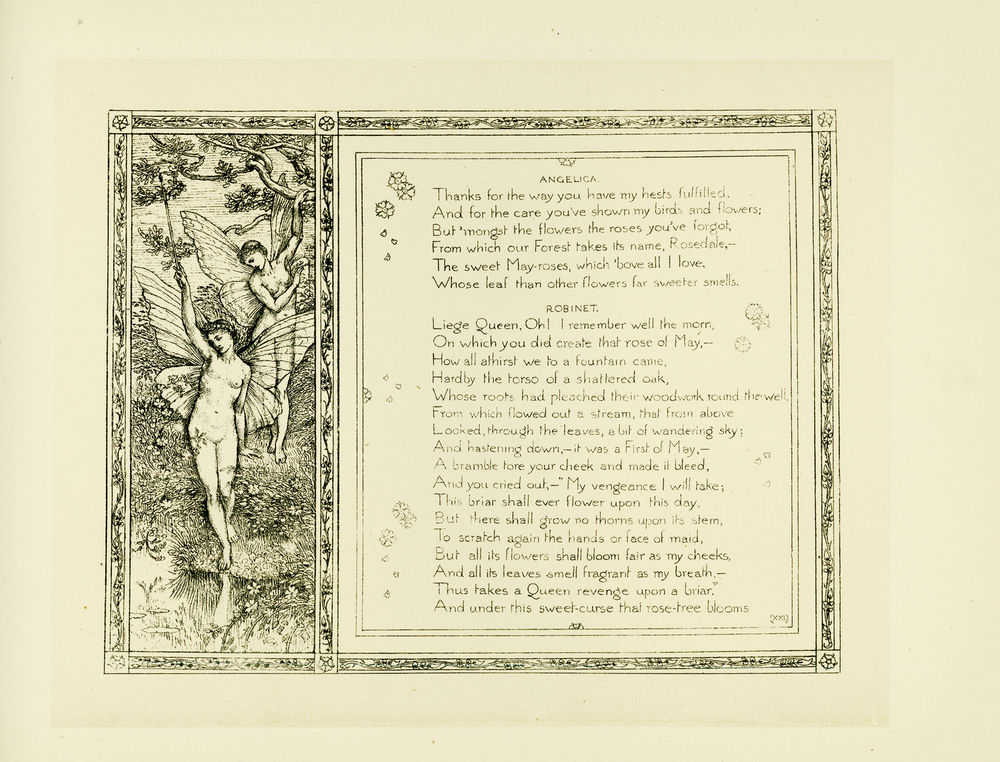 ANGELICA.
Thanks for the way you have my hests fulfilled,
And for the care you've shown my birds and flowers;
But 'mongst the flowers the roses you've forgot,
From which our Forest takes its name, Rosedale,—
The sweet May-roses, which 'bove all I love,
Whose leaf than other flowers far sweeter smells.
ROBINET.
Liege Queen, Oh! I remember well the morn,
On which you did create that rose of May,—
How all athirst we to a fountain came,
Hardby the torso of a shattered oak,
Whose roots had pleached their woodwork round the well,
From which flowed out a stream, that from above
Looked, through the leaves, a bit of wandering sky;
And hastening down,—it was a First of May,—
A bramble tore your cheek and made it bleed,
And you cried out,—"My vengeance I will take;
This briar shall ever flower upon this day,
But there shall grow no thorns upon its stem,
To scratch again the hands or face of maid,
But all its flowers shall bloom fair as my cheeks,
And all its leaves smell fragrant as my breath,—
Thus takes a Queen revenge upon a briar."
And under this sweet-curse that rose-tree blooms